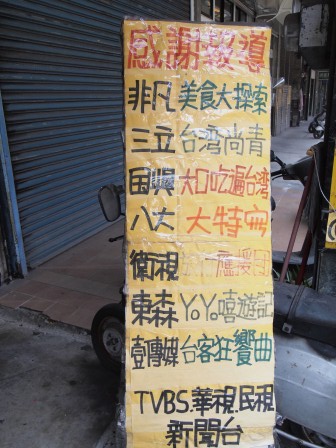 感謝報導
非凡 美食大探索
三立 台湾尚青
国興 大口吃遍台湾
八大 大特寫
衛視 應援団
東森 YoYo嘻遊記
壹傳媒 台客狂響曲
TVBS.華視.民視
新聞台